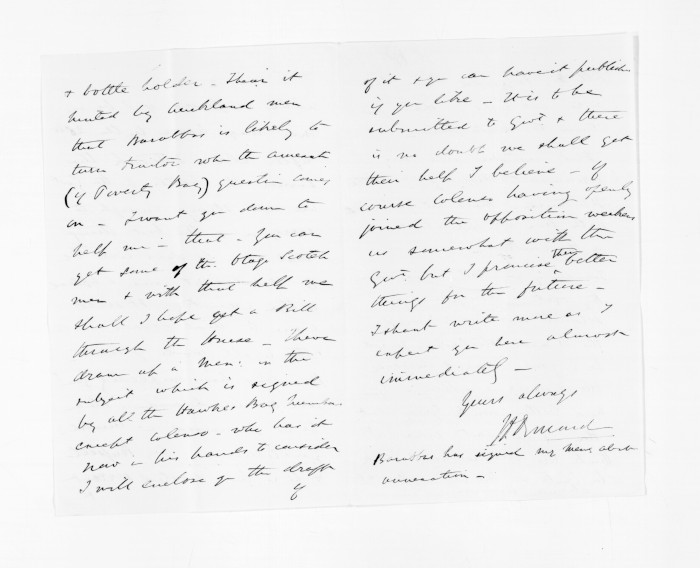 & bottle holder - I hear it
hinted by Auckland men
that Barabbas is likely to
turn traitor when the annexatn
(of Poverty Bay) question comes
on - I want you down to
help me in that - You can
get some of the Otago Scotch
men & with that help we
shall I hope get a Bill
through the House - I have
drawn up a Mem: on the
subject which is signed
by all the Hawkes Bay Members
except Colenso - who has it
now in his hands to consider
I will enclose you the draft
of
of it & you can have it publish
if you like - It is to be
submitted to Govt & there
is no doubt we shall get
their help I believe - Of
course Colenso having openly
joined the opposition weakens
us somewhat with the
Govt but I promise them better
things for the future -
I shant write more as I
expect you here almost
immediately -
Yours always
J D Ormond
Barabbas has signed my Mem. about
annexation -